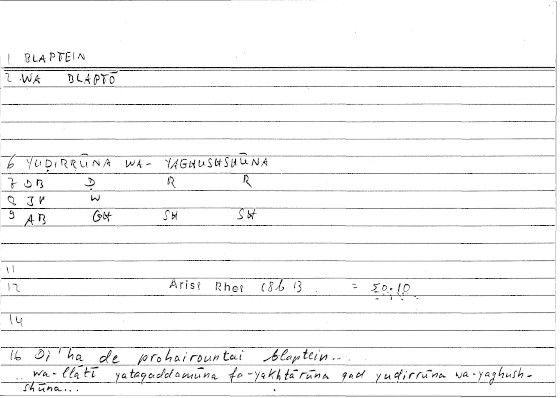 1 BLAPTEIN
2 WA BLAPTŌ
6 YUḌIRRŪNA WA- YAGHUSHSHŪNA
7 DB Ḍ R R
8 JP W
9 AB GH SH SH
11
12 Arist Rhet 1 = 50.10
14
16 Di'ha de prohairountai blaptein...
.. wa-llātī yataqaddamūna fa-yakhtārūna qad yudirrūna wa-yaghush-
shūna...